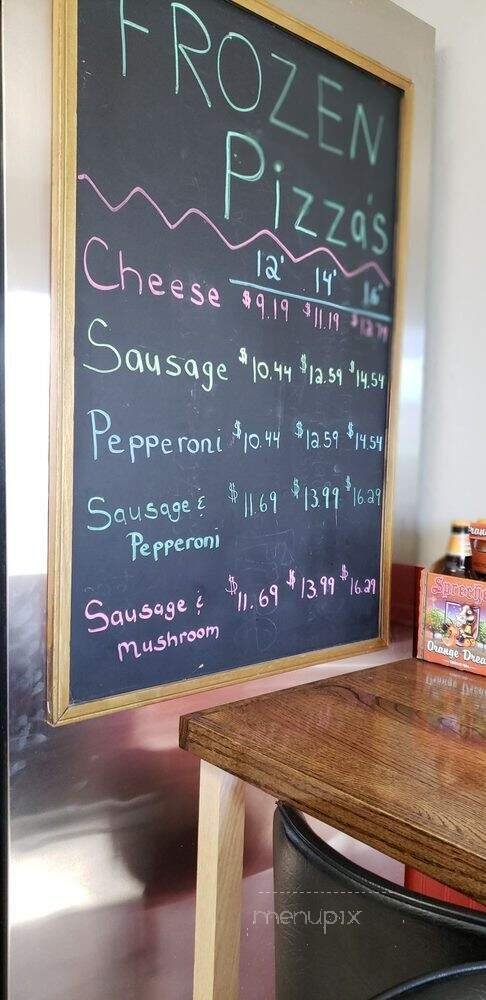 FROZEN
Pizza's
12' 14' 16"
Cheese $9.19 $11.19 $12.79
Sausage $10.44 $12.59 $14.54
Pepperoni $10.44 $12.59 $14.54
Sausage & $11.69 $13.99 $16.29
Pepperoni
Sausage & $11.69 $13.99 $16.29
mushroom
Orange
menupix